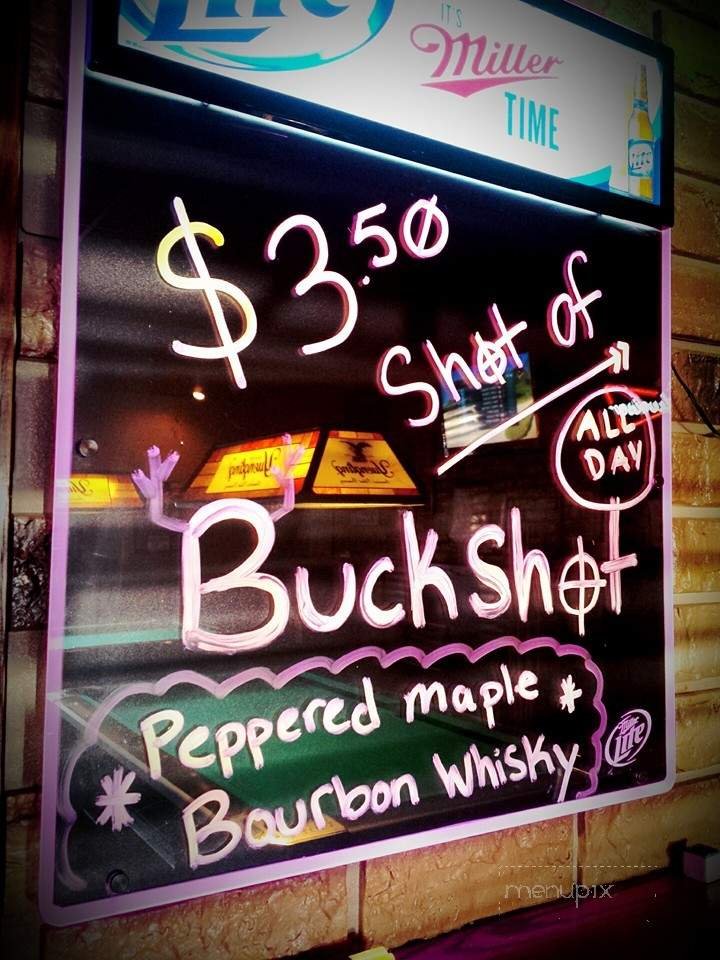 Lite
IT'S
Miller
TIME
Lite
$3.50
Shot of
ALL
DAY
Yuengling Yuengling
Buckshot
Peppered maple *
* Bourbon Whisky
Lite
menupix